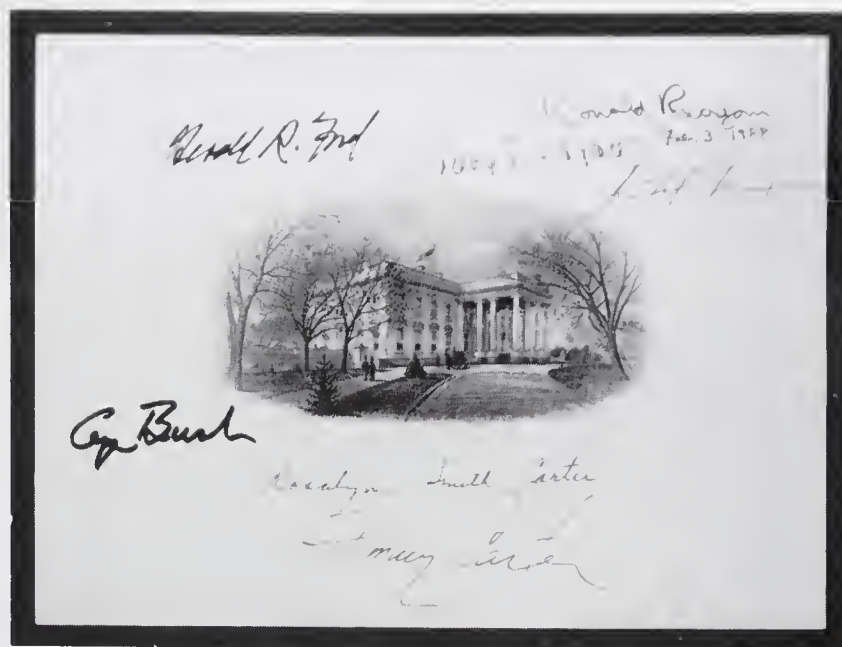 Gerald R. Ford
Ronald Reagan
Feb. 3 1988
G Bush
Rosalynn Smith Carter
Jimmy Carter